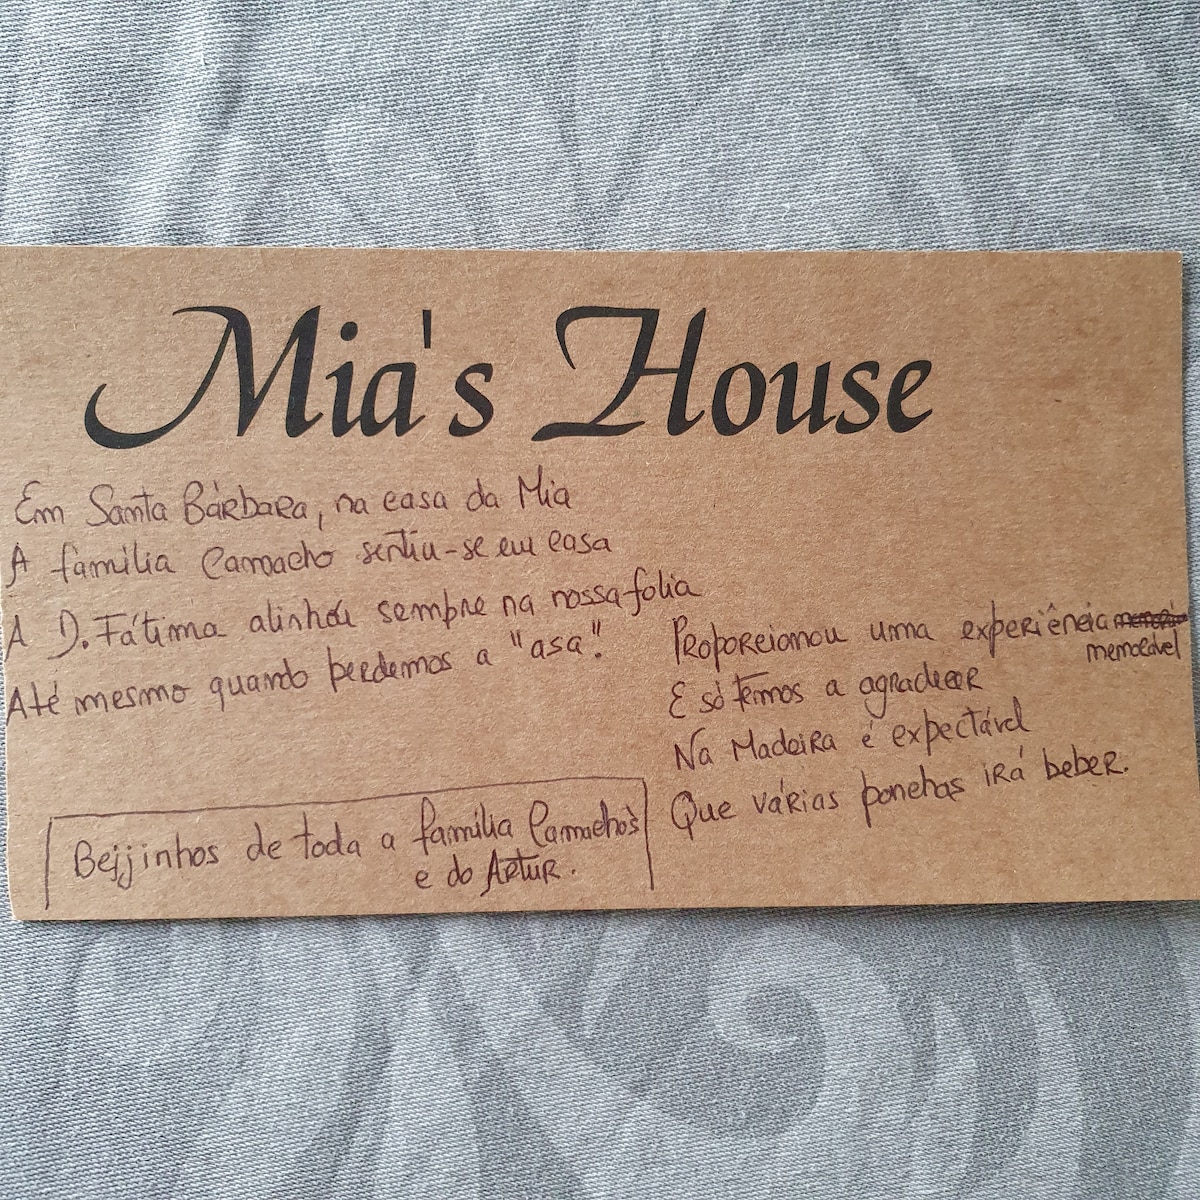 Mia's House
Em Santa Bárbara, na casa da Mia
A família Camacho sentiu-se em casa
A D. Fátima alinhou sempre na nossa folia
Até mesmo quando perdemos a "asa".
Proporcionou uma experiência
memorável
E só temos a agradecer
Na Madeira é expectável
Que várias ponchas irá beber.
Beijjinhos de toda a família Camacho's
e do Artur.